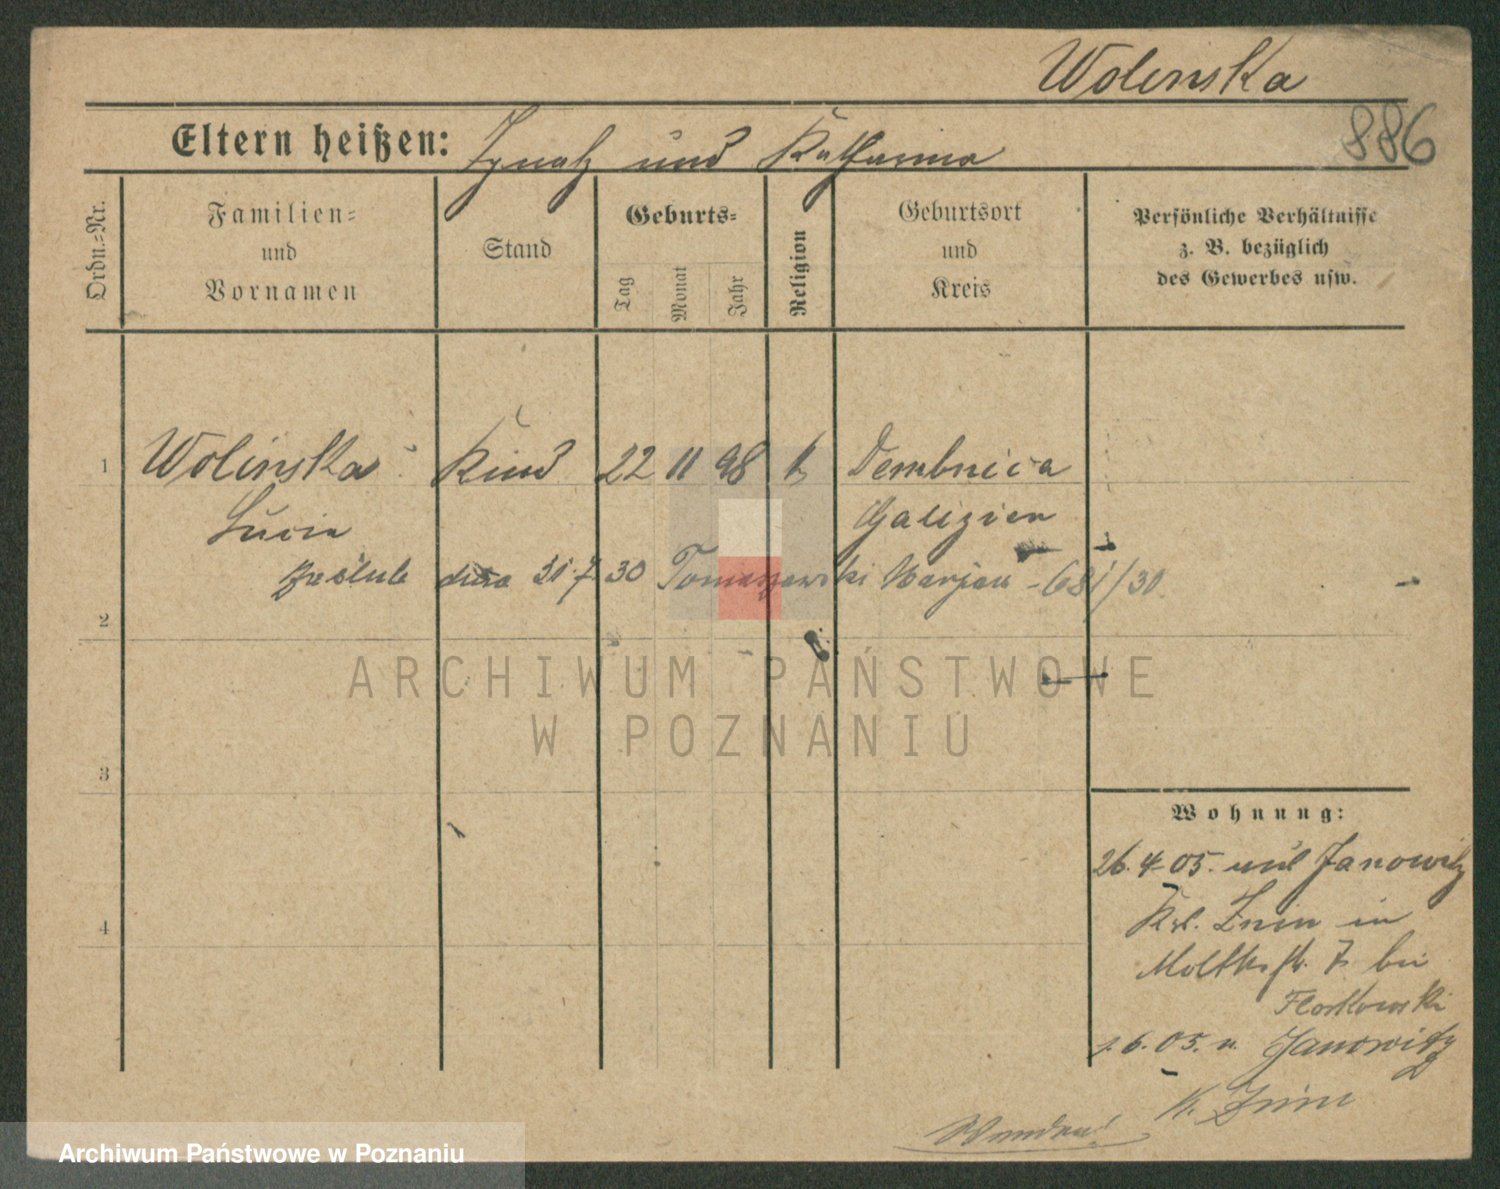 Wolinska
886
Eltern heißen: Ignatz und Katharina
Ordn.=Nr.
Familien=
und
Vornamen
Stand
Geburts=
Tag
Monat
Jahr
Religion
Geburtsort
und
Kreis
Persönliche Verhältnisse
z. B. bezüglich
des Gewerbes usw.
1 Wolinska Kind 22 11 98 k Dembnica
Lucia Galizien
zaślub dnia 31.7.30 Tomaszewski Marjan - 681/30
2
3
4
ARCHIWUM PAŃSTWOWE
W POZNANIU
Wohnung:
26.4.05. Janowitz
Kr. Znin in
Moltkestr. 7 bei
Floskowski
1.6.05. n. Janowitz
K. Znin
Archiwum Państwowe w Poznaniu